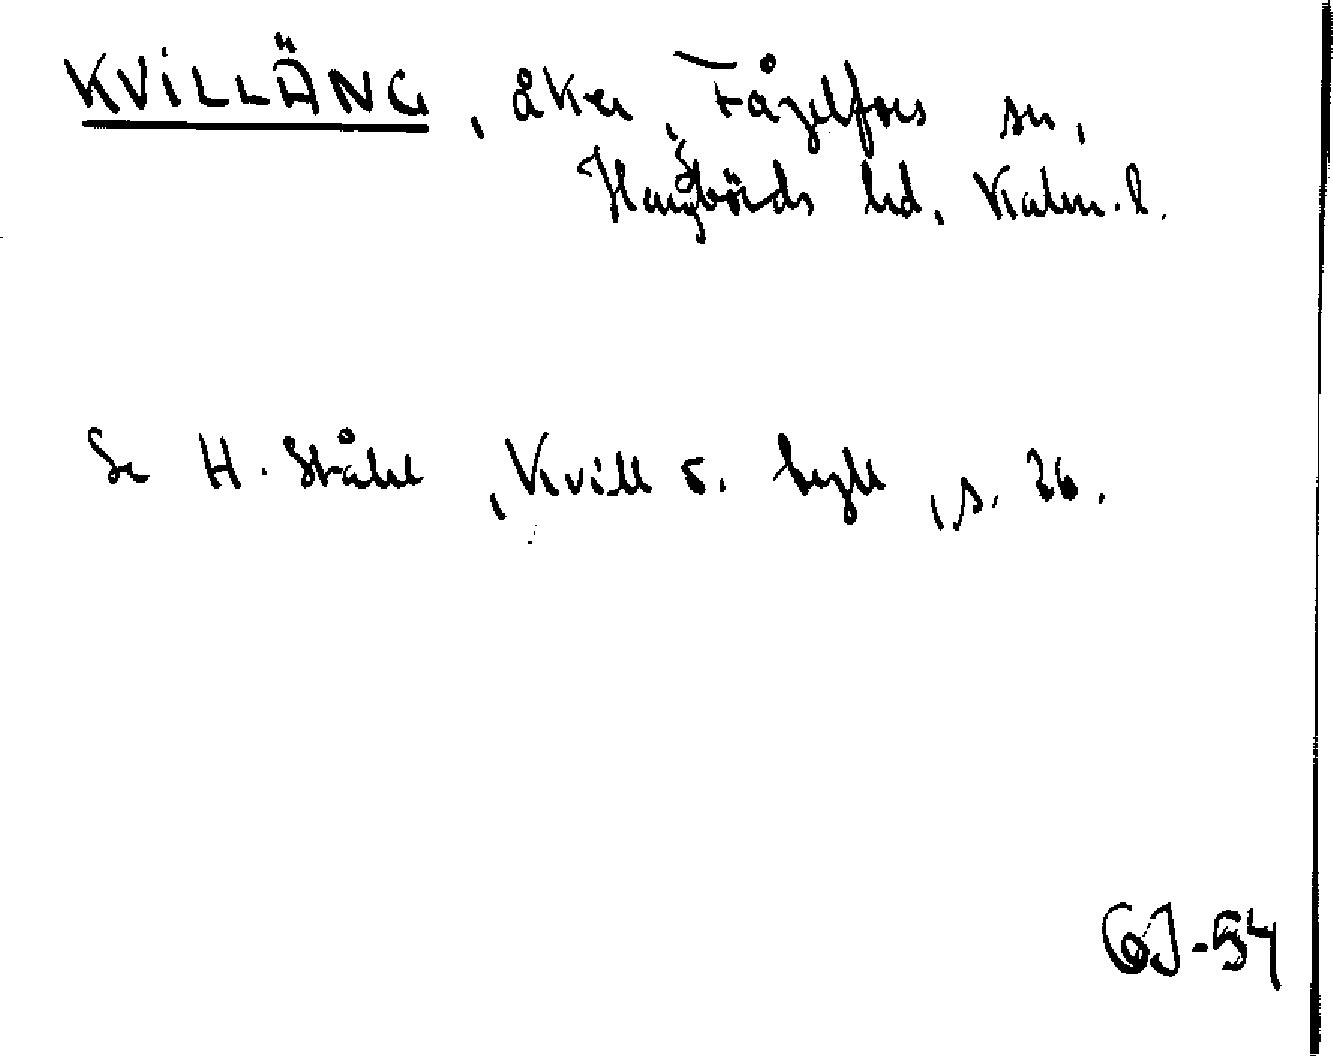 KVILLÄNG, åker, Fågelfors sn,
Handbörds hd, Kalm. l.
Se H. Ståhl, Kvill o. tyll, s. 26.
GJ-54